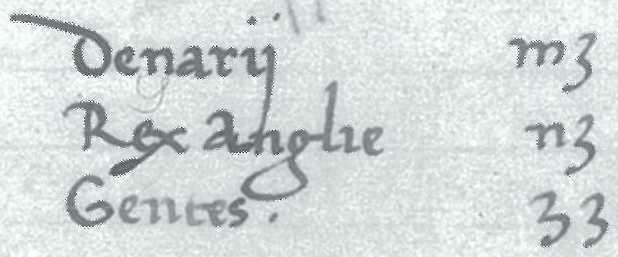 Denarij m3
Rex Anglie n3
Gentes. 33